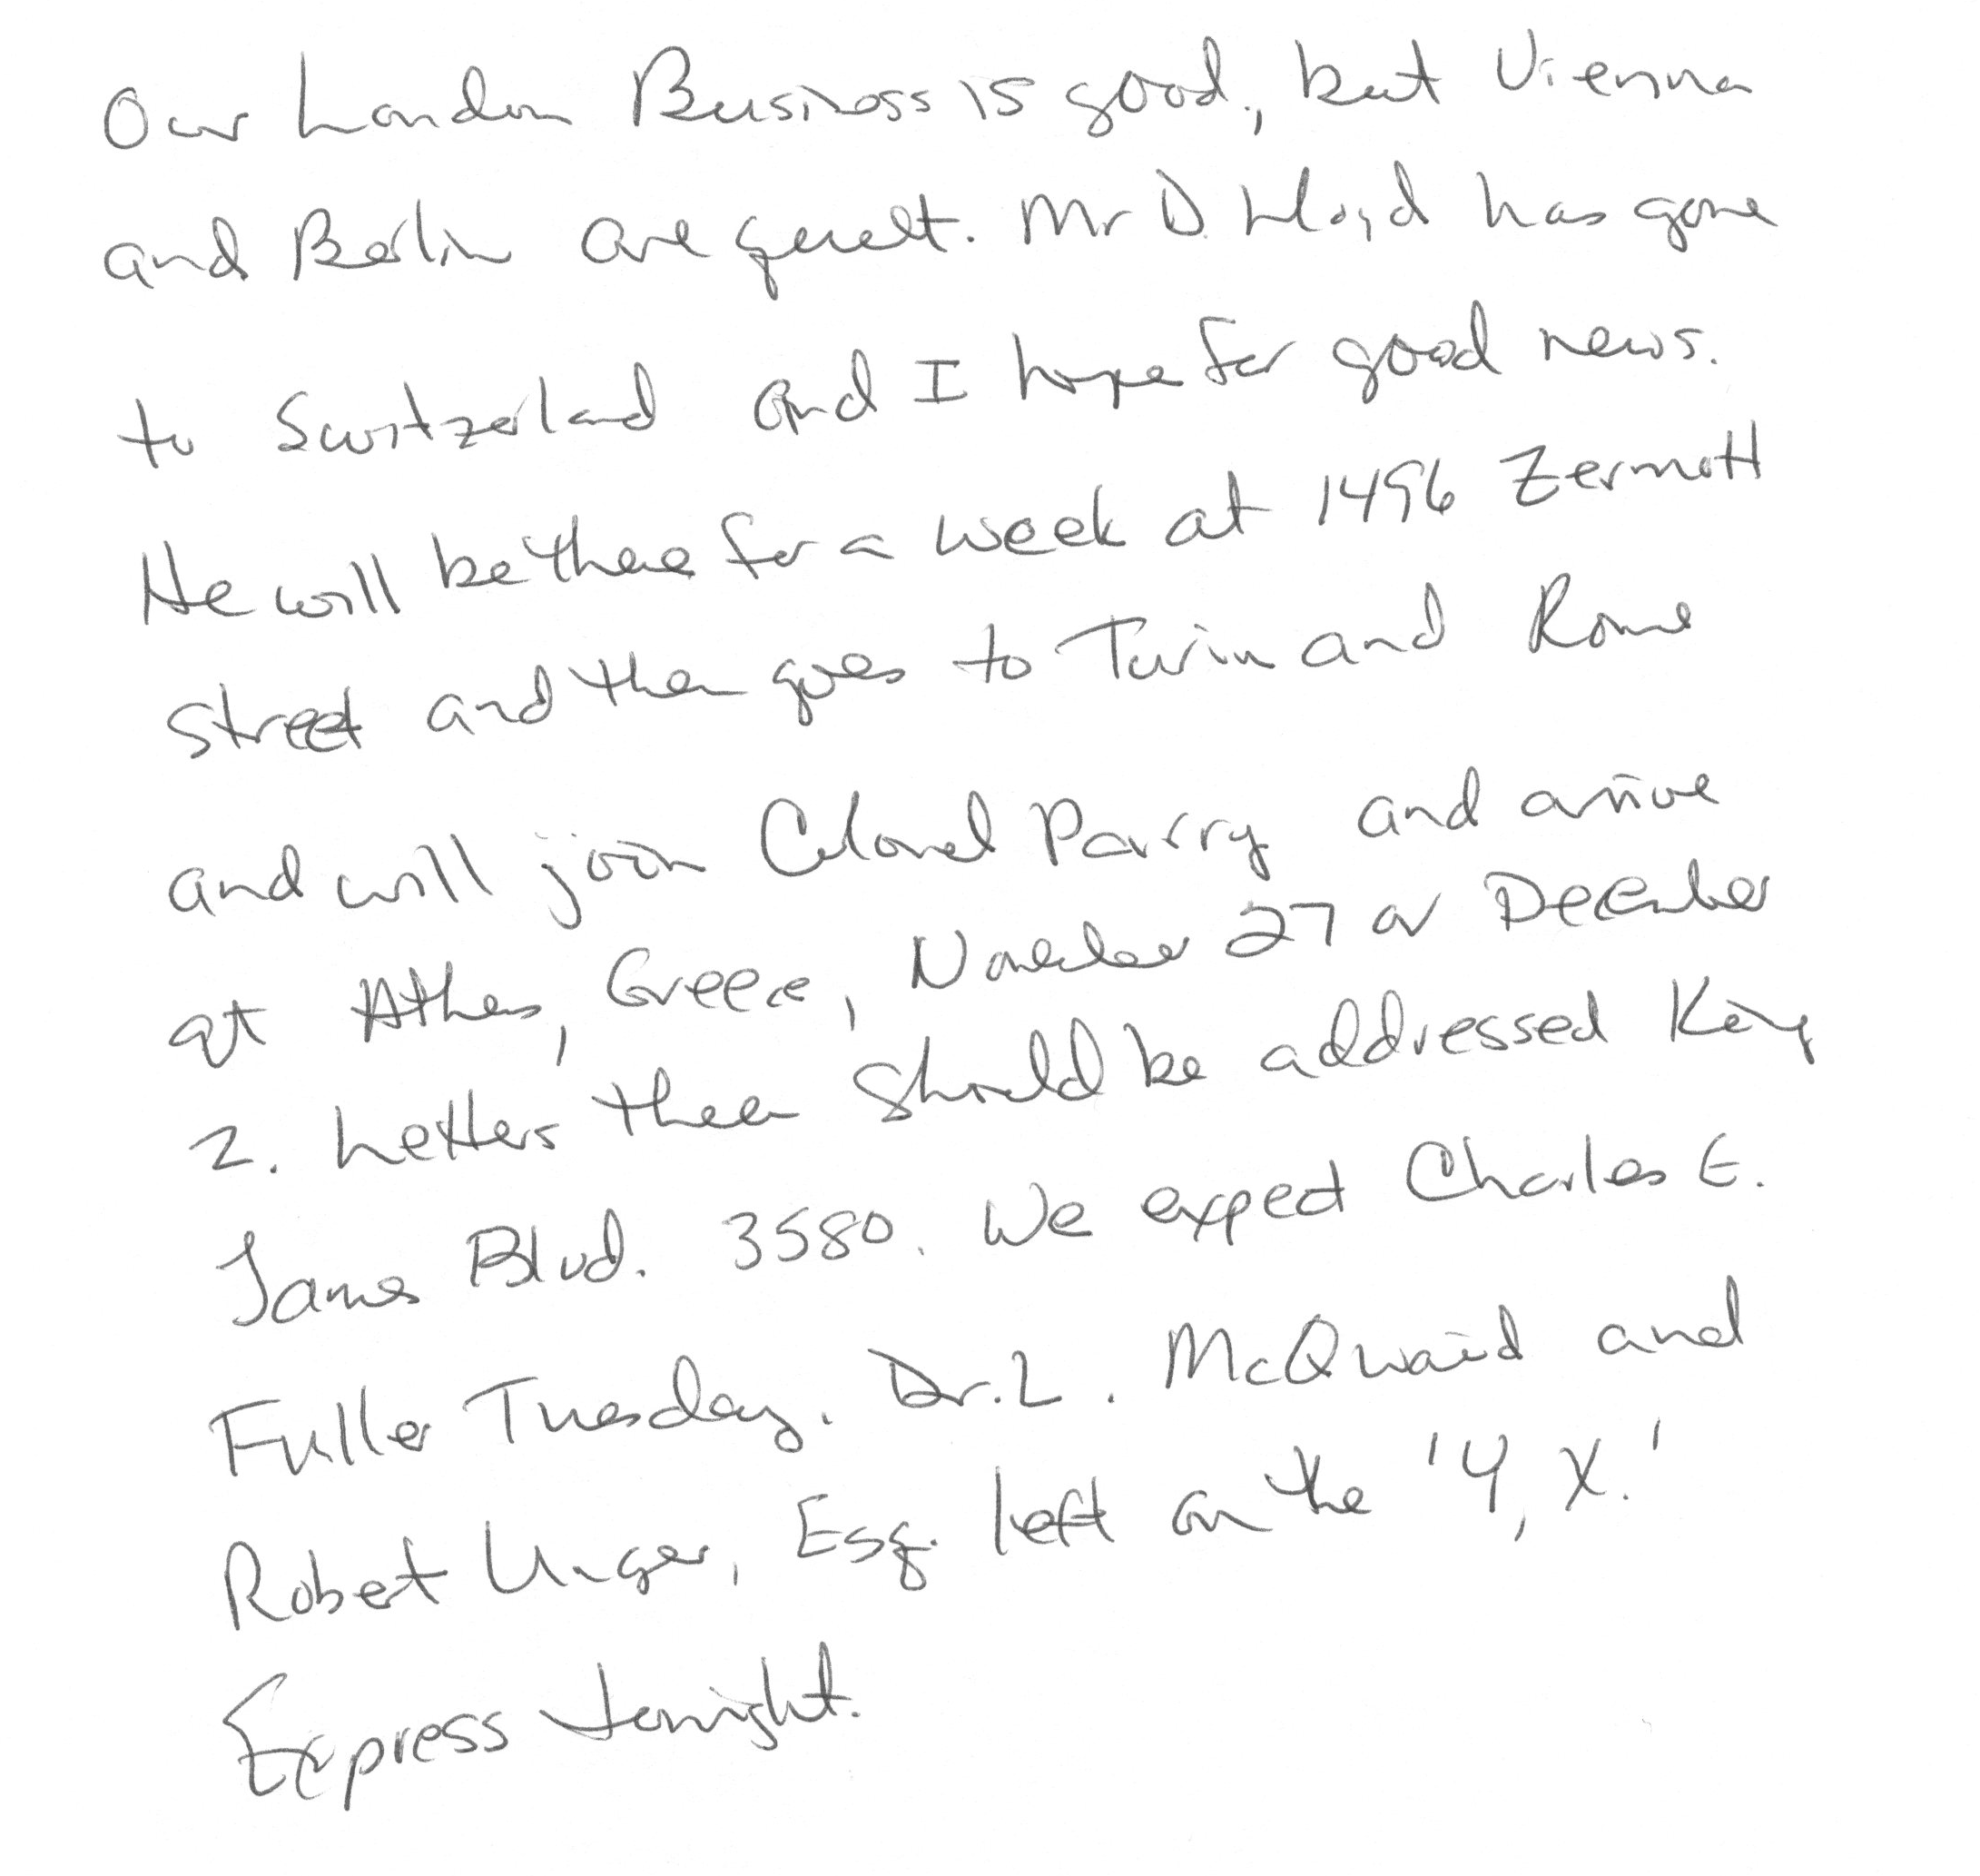 Our London Business is good, but Vienna
and Berlin are quiet. Mr D. Lloyd has gone
to Switzerland and I hope for good news.
He will be there for a week at 1496 Zermott
street and then goes to Turin and Rome
and will join Colonel Parry and arrive
at Athens, Greece, November 27 or December
2. Letters there should be addressed King
James Blvd. 3580. We expect Charles E.
Fuller Tuesday. Dr. L. McQuaid and
Robert Unger, Esq. left on the 'Y, X.'
Express tonight.